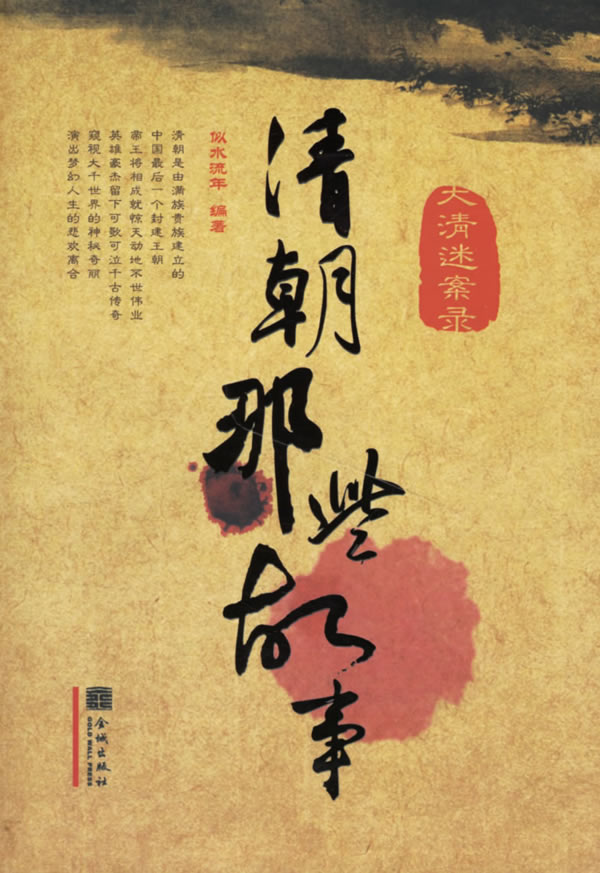 大清迷案录
清朝那些故事
似水流年 编著
清朝是由满族贵族建立的
中国最后一个封建王朝
帝王将相成就惊天动地不世伟业
英雄豪杰留下可歌可泣千古传奇
窥视大千世界的神秘奇丽
演出梦幻人生的悲欢离合
金城出版社
GOLD WALL PRESS